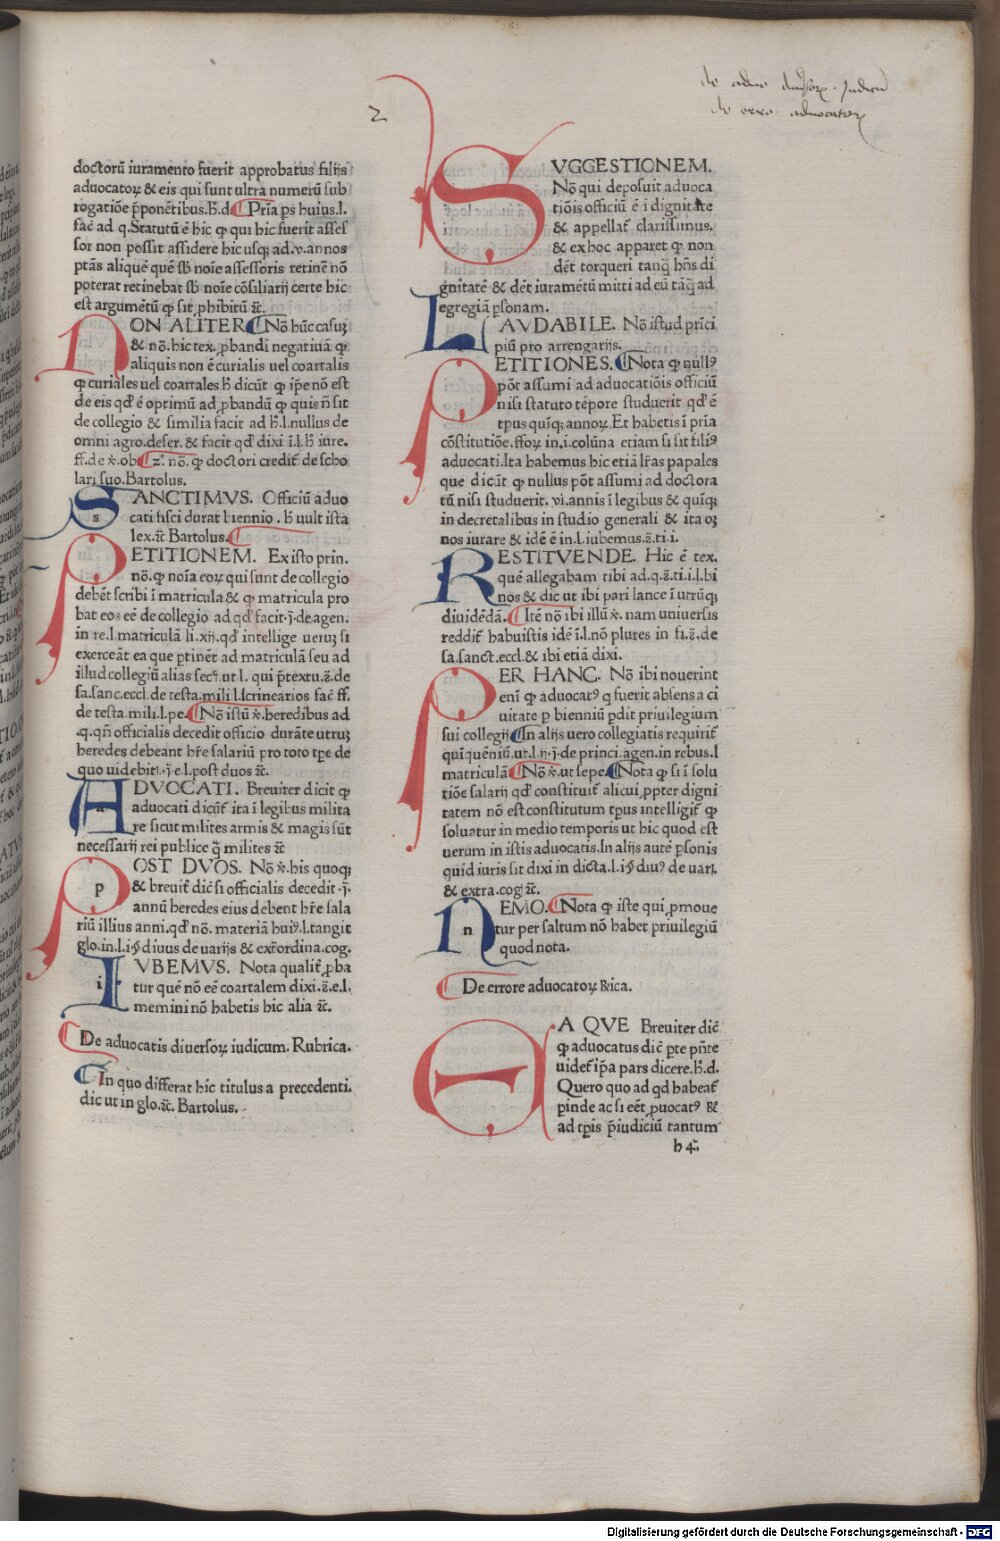 de advo diuersorꝝ Judicū
de errore aduocatorꝝ
2
doctorū iuramento fuerit approbatus filijs
aduocatoꝝ & eis qui sunt ultra numerū sub
rogatiōe p̄ponētibus.h̄.d. Pr̄ia ps huius.l.
fac̄ ad q.Statutū ē hic ꝙ qui hic fuerit asses
sor non possit assidere hic usqꝫ ad.v.annos
ptās aliquē quē sb̄ noīe assessoris retinēt nō
poterat retinebat sb̄ noīe cōsiliarij certe hic
est argumētū ꝙ sit ꝓhibitū ⁊c̄.
NON ALITER Nō hūc casuꝫ
& nō.hic tex. ꝓbandi negatiuā ꝙ
aliquis non ē curialis uel coartalis
ꝙ curiales uel coartales h̄ dicūt ꝙ ip̄e nō est
de eis qd̄ ē optimū ad ꝓbandū ꝙ quis n̄ sit
de collegio & similia facit ad h̄.l.nullus de
omni agro.deser. & facit qd̄ dixi ī.l.h̄ iure.
ff.de x̄.ob. z°. nō. ꝙ doctori credit̄ de scho
lari suo.Bartolus.
SANCTIMVS. Officiū aduo
cati fisci durat biennio . h̄ uult ista
lex.⁊c̄ Bartolus.
PETITIONEM. Ex isto prin.
nō.ꝙ noīa eoꝝ qui sunt de collegio
debēt scribi ī matricula & ꝙ matricula pro
bat eos eē de collegio ad qd̄ facit.j.de agen.
in re.l.matriculā li.xij.qd̄ intellige ueruꝫ si
exerceāt ea que ꝑtinēt ad matriculā seu ad
illud collegiū alias sec⁹.ut l. qui p̄textu.ā.de
sa.sanc.eccl.de testa.mili l.scrinearios fac̄ ff.
de testa.mili.l.pe. Nō istū x̄.heredibus ad
.q.qn̄ officialis decedit officio durāte utruꝫ
heredes debeant hr̄e salariū pro toto tp̄e de
quo uidebit.j.e.l.post duos ⁊c̄.
ADVOCATI. Breuiter dicit ꝙ
aduocati dicūt̄ ita ī legibus milita
re sicut milites armis & magis sūt
necessarij rei publice q̄ milites ⁊c̄
POST DVOS. Nō x̄.his quoqꝫ
& breuit̄ dic̄ si officialis decedit .j.
annū heredes eius debent hr̄e sala
riū illius anni.qd̄ nō. materiā hui⁹.l.tangit
glo.in.l.i.§ diuus de uarijs & ext̄ordina.cog.
IVBEMVS. Nota qualit̄ ꝓba
tur quē nō eē coartalem dixi.ā.e.l.
memini nō habetis hic alia ⁊c̄.
De aduocatis diuersoꝝ iudicum. Rubrica.
In quo differat hic titulus a precedenti.
dic ut in glo.⁊c̄. Bartolus.
SVGGESTIONEM.
Nō qui deposuit aduoca
tiōis officiū ē ī dignitate
& appellat̄ clarissimus.
& ex hoc apparet ꝙ non
dēt torqueri tanq̄ hn̄s di
gnitatē & dēt iuramētū mitti ad eū tāq̄ ad
egregiā ꝑsonam.
LAVDABILE. Nō istud prīci
piū pro arrengarijs.
PETITIONES. Nota ꝙ null⁹
pōt assumi ad aduocatiōis officiū
nisi statuto tēpore studuerit qd̄ ē
tꝑus quīqꝫ annoꝝ.Et habetis ī pria
cōstitutiōe.ffoꝝ in.i.colūna etiam si sit fili⁹
aduocati.Ita habemus hic etiā lr̄as papales
que dicūt ꝙ nullus pōt assumi ad doctora
tū nisi studuerit. vi.annis ī legibus & quīqꝫ
in decretalibus in studio generali & ita oꝫ
nos iurare & idē ē in.l.iubemus.ā.ti.i.
RESTITVENDE. Hic ē tex.
quē allegabam tibi ad.q.ā.ti.i.l.bi
nos & dic ut ibi pari lance ī utrūqꝫ
diuidēdā. Itē nō ibi illū x̄. nam uniuersis
reddit̄ habuistis idē ī.l.nō plures in fi.ā.de
sa.sanct.eccl.& ibi etiā dixi.
PER HANC. Nō ibi nouerint
enī ꝙ aduocat⁹ q fuerit absens a ci
uitate p bienniū ꝑdit priuilegium
sui collegij In alijs uero collegiatis requirit̄
quīquēniū.ut.l.ij.j.de princi.agen.in rebus.l
matriculā Nō x̄.ut sepe. Nota ꝙ si ī solu
tiōe salarij qd̄ constituit̄ alicui ꝓpter digni
tatem nō est constitutum tꝑus intelligit̄ ꝙ
soluatur in medio temporis ut hic quod est
uerum in istis aduocatis.In alijs autē ꝑsonis
quid iuris sit dixi in dicta.l.i.§ diu⁹ de uari.
& extra.cog ⁊c̄.
NEMO. Nota ꝙ iste qui ꝓmoue
tur per saltum nō habet priuilegiū
quod nota.
De errore aduocatoꝝ Rica.
EA QVE Breuiter dic̄
ꝙ aduocatus dic̄ pte pn̄te
uidet̄ ip̄a pars dicere.h̄.d.
Quero quo ad qd habeat̄
ꝑinde ac si eēt ꝓuocat⁹ R̄
ad tp̄is p̄iudiciū tantum
h 4
Digitalisierung gefördert durch die Deutsche Forschungsgemeinschaft - DFG